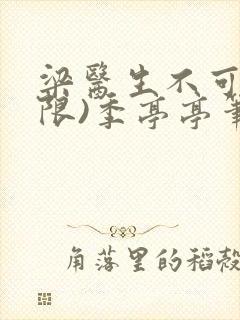 梁醫生不可
限)季亭亭筆
角落里的稻殼